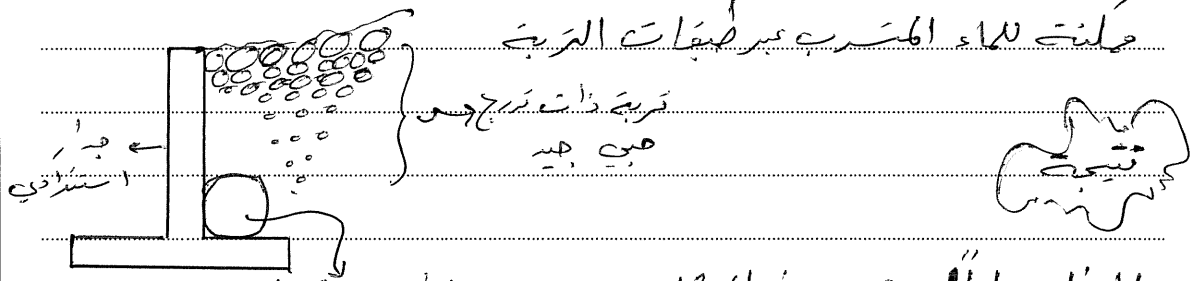 ممكنة للماء المتسرب عبر طبقات التربة
تربة ذات تدرج
حبي جيد
جدار
استنادي
نتيجة